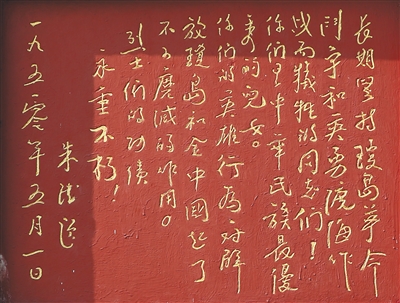 长期坚持琼岛革命
鬥争和英勇渡海作
战而牺牲的同志们！
你们是中华民族最优
秀的兒女。
你们的英雄行为，对解
放琼岛和全中國起了
不可磨滅的作用。
烈士们的功绩
永垂不朽！
朱德题
一九五零年五月一日